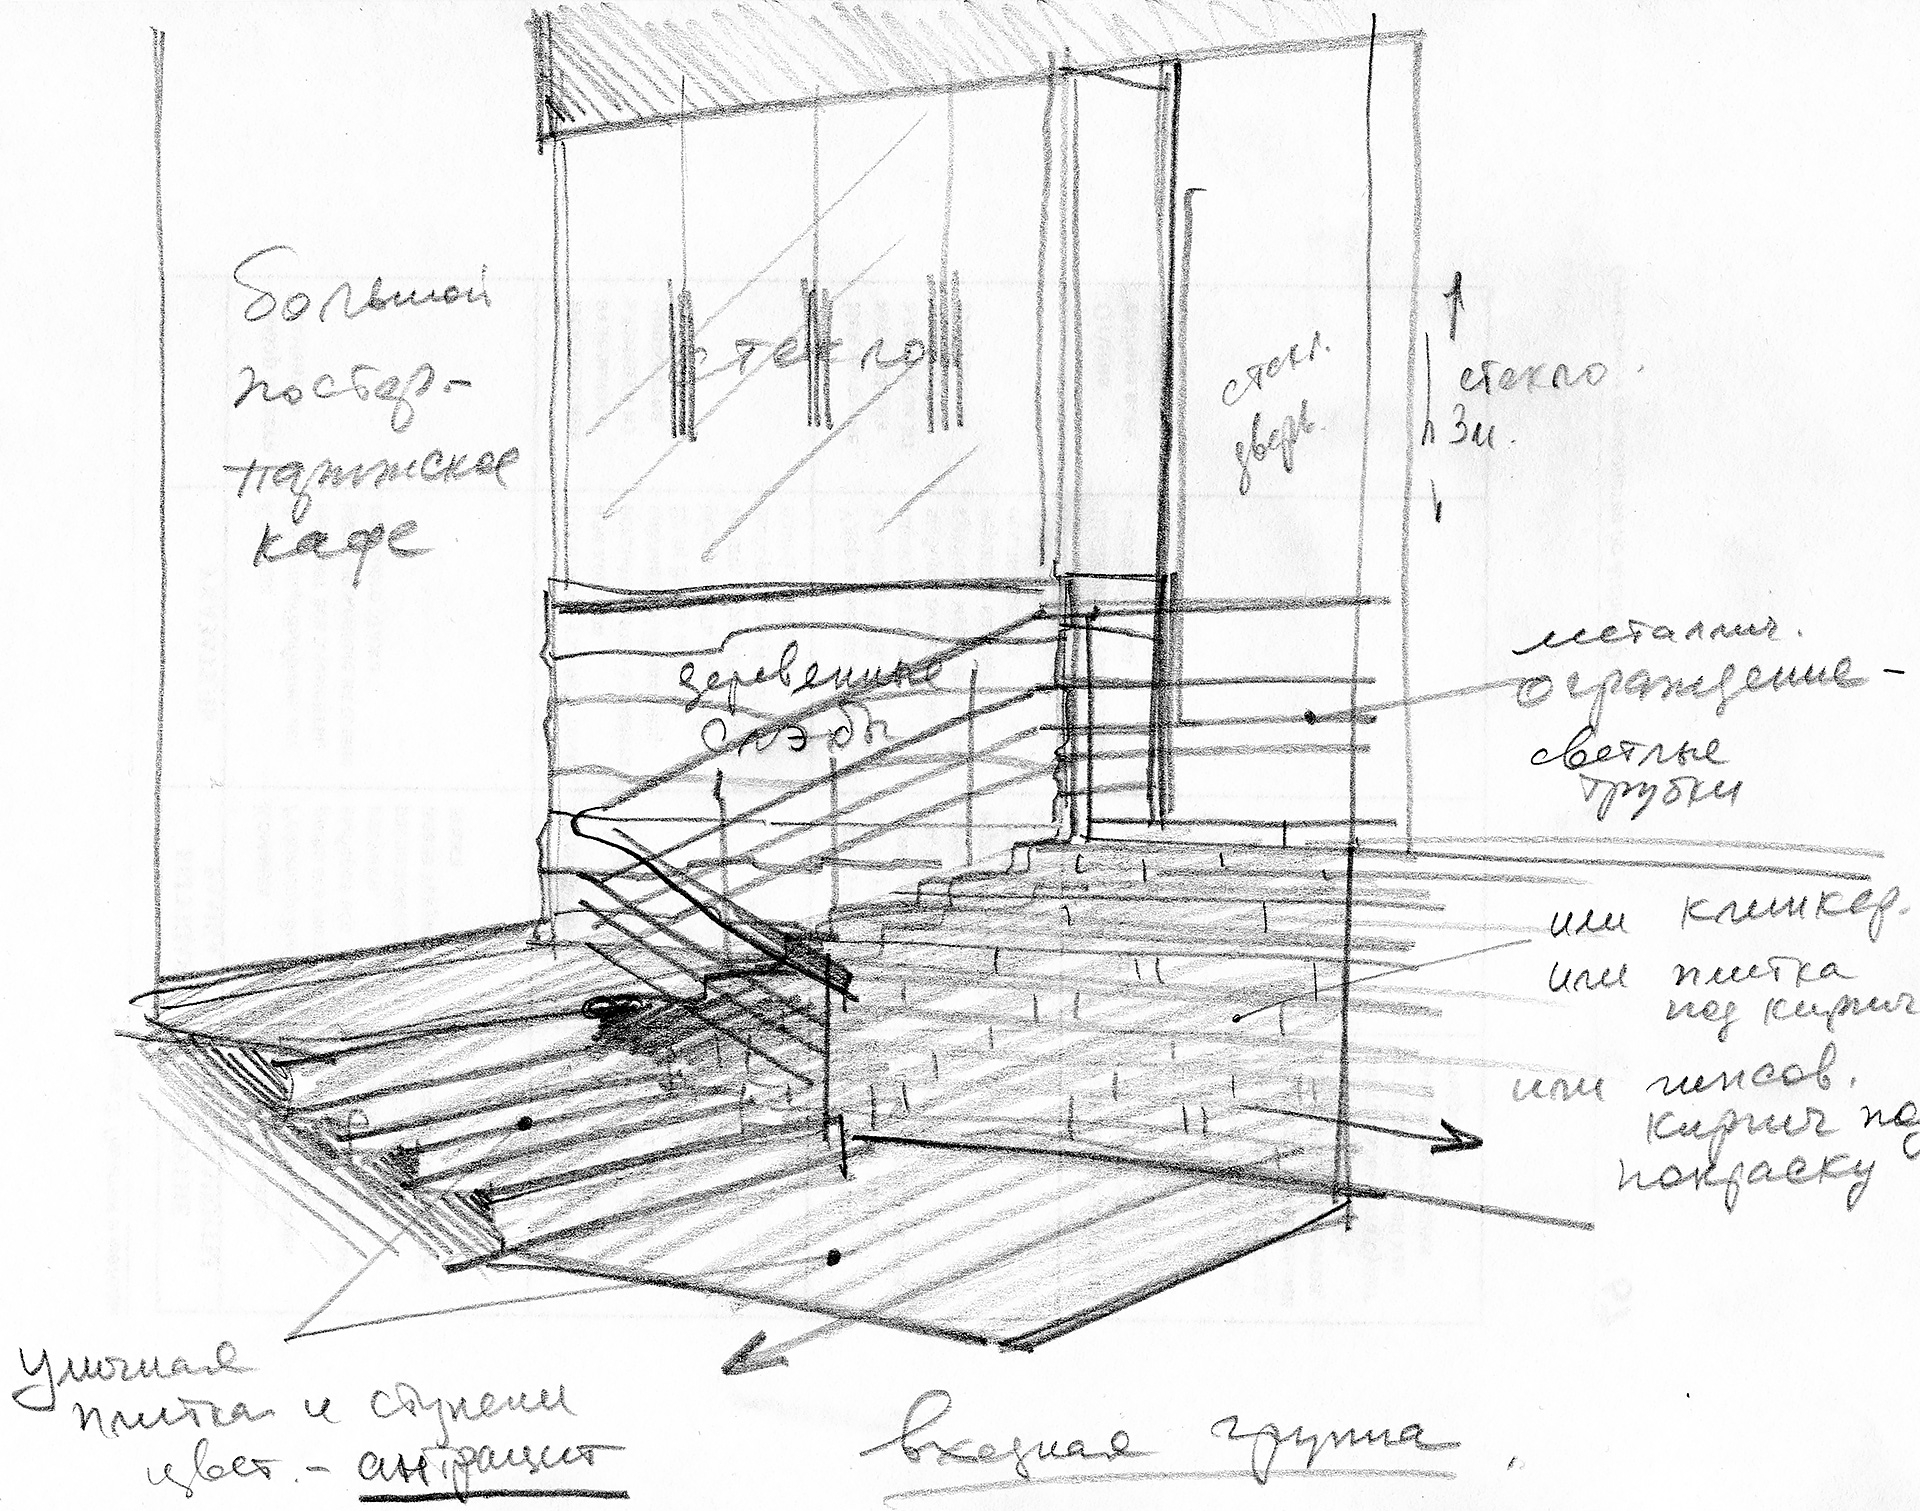 большой
постер-
парижское
кафе
стекло
стекл.
дверь.
стекло.
3м.
деревянные
слэбы
металлич.
ограждение-
светлые
трубки
или клинкер.
или плитка
под кирпич
или гипсов.
кирпич под
покраску
уличная
плитка и ступени
цвет. - антрацит
входная группа.